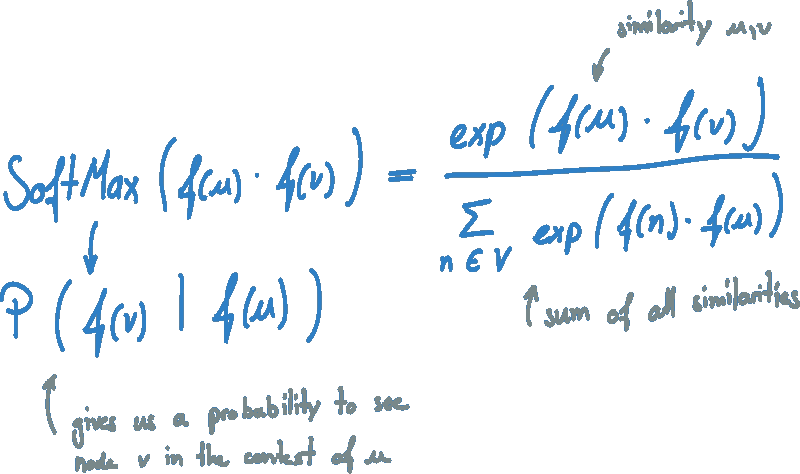 similarity u,v
SoftMax (f(u) · f(v)) = exp (f(u) · f(v)) / ∑ n ∈ V exp (f(n) · f(u))
P (f(v) | f(u))
sum of all similarities
gives us a probability to see
node v in the context of u